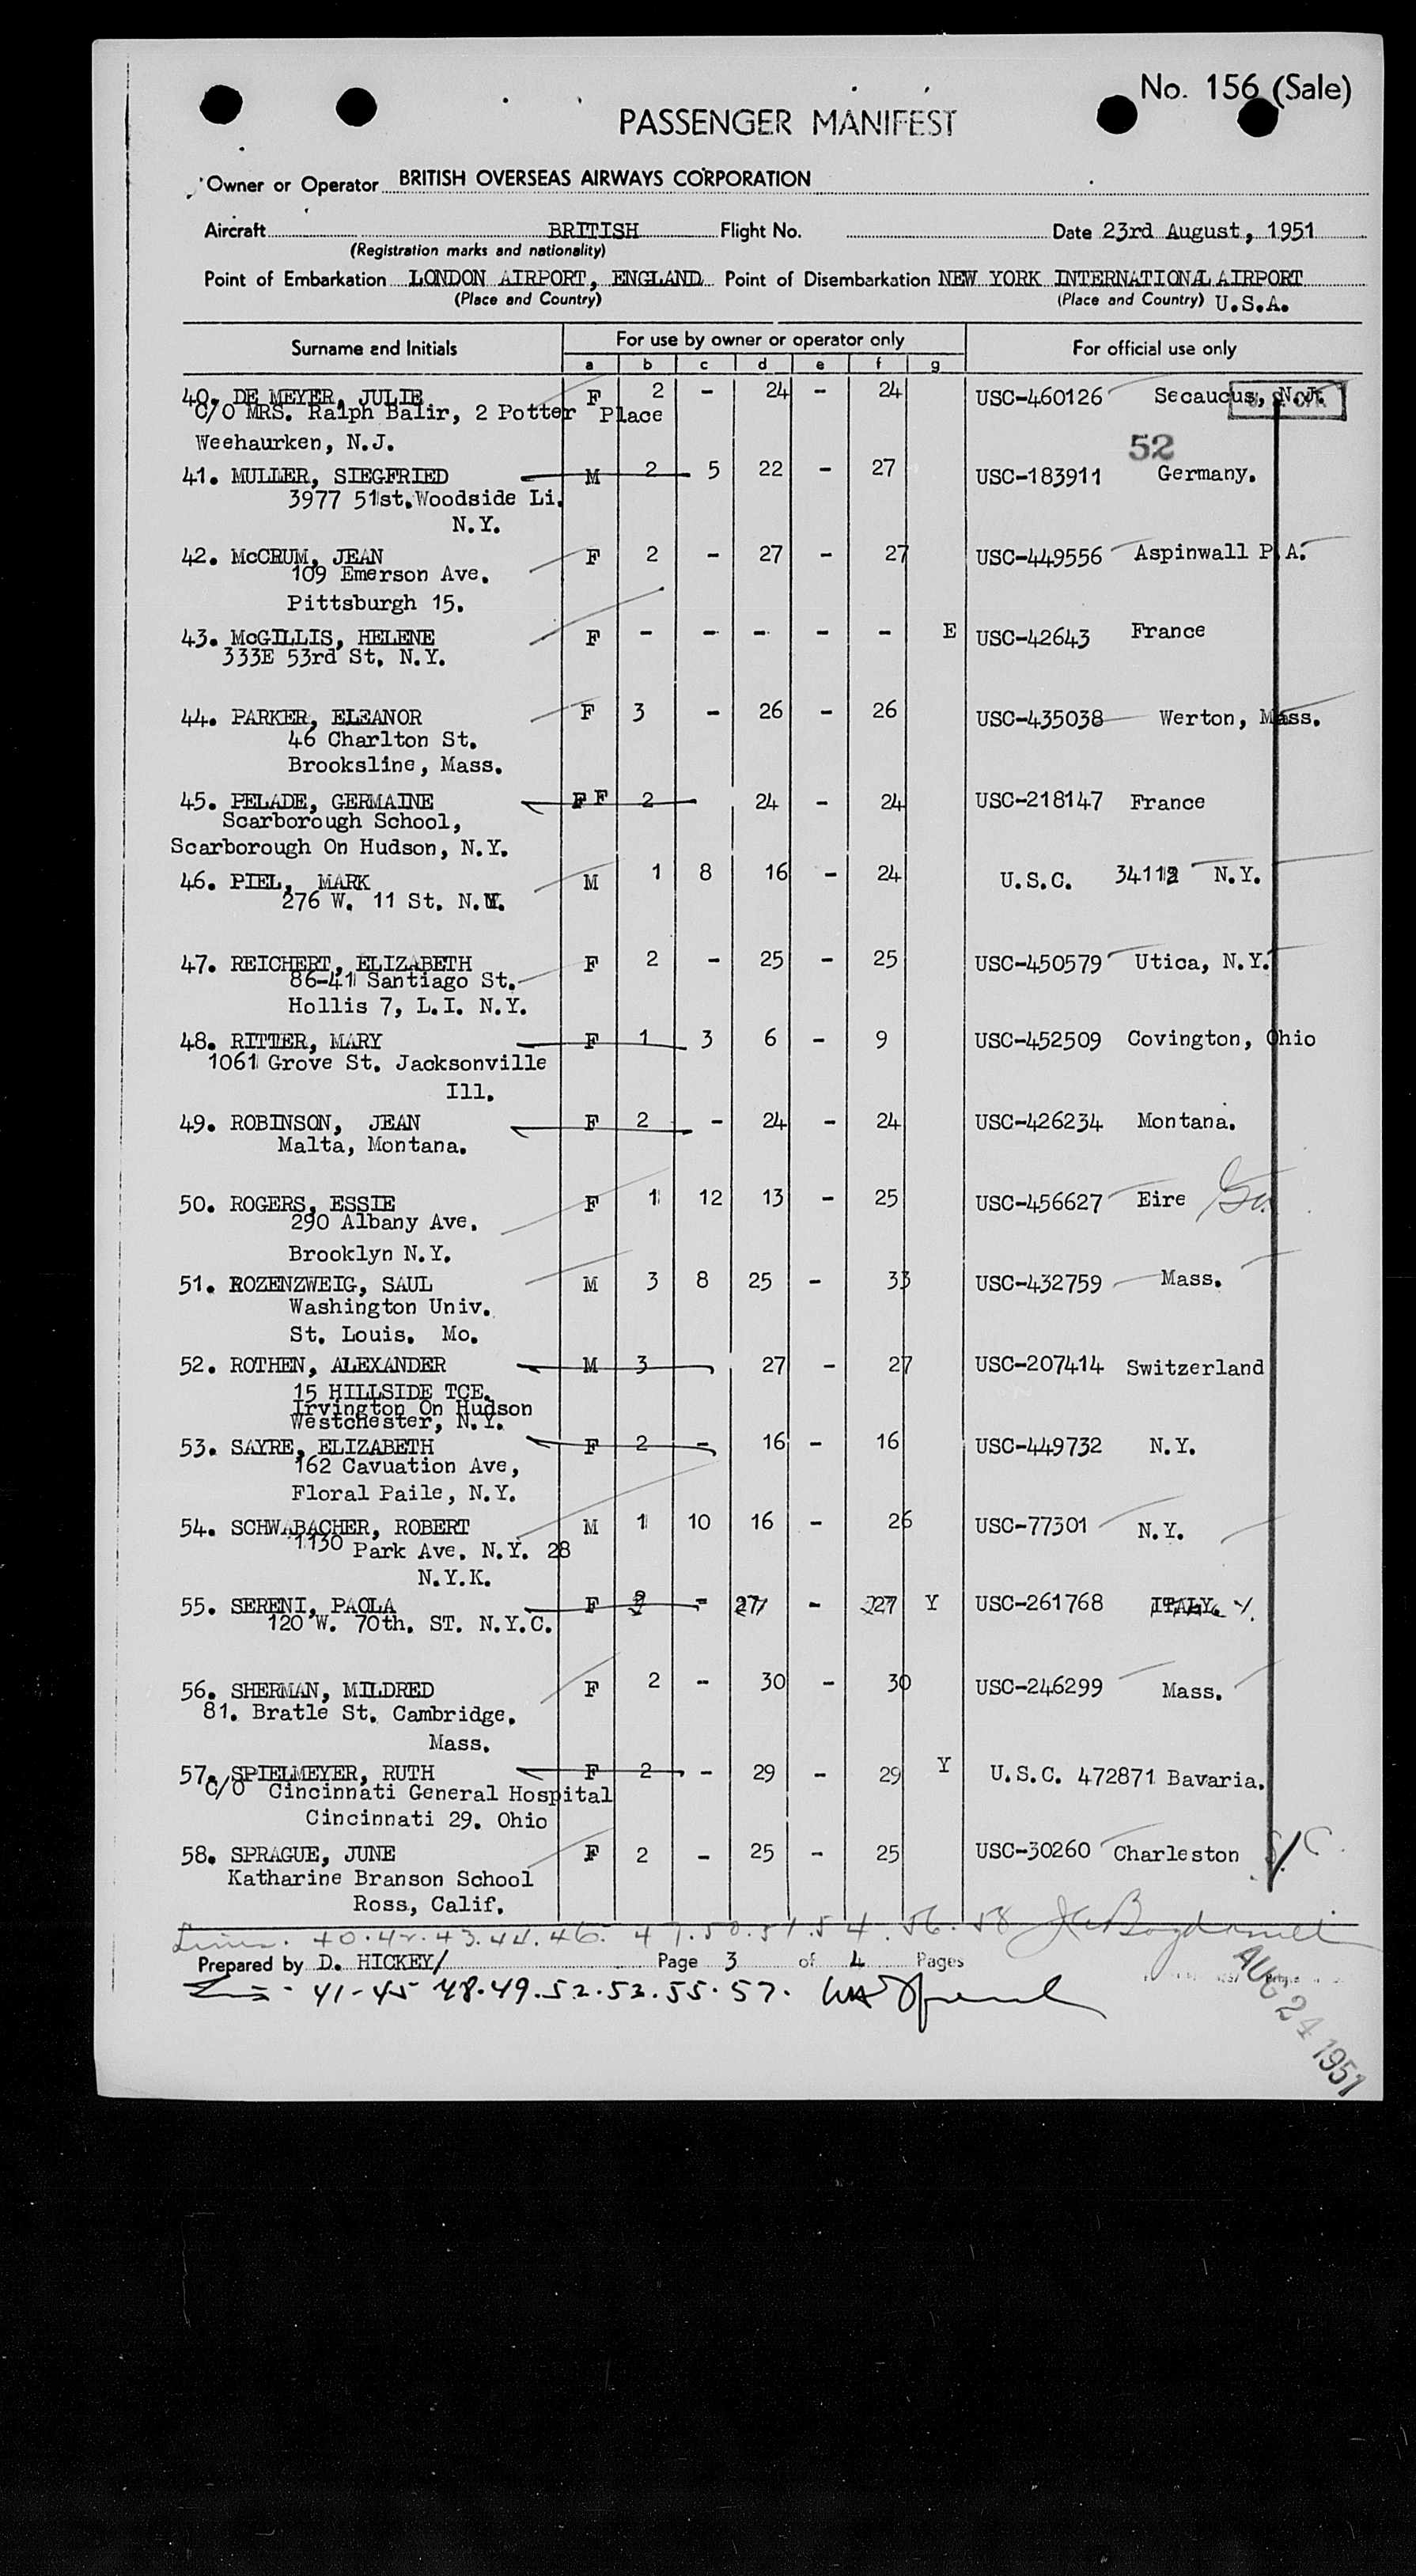 No. 156 (Sale)
PASSENGER MANIFEST
Owner or Operator BRITISH OVERSEAS AIRWAYS CORPORATION
Aircraft BRITISH Flight No. Date 23rd August, 1951
(Registration marks and nationality)
Point of Embarkation LONDON AIRPORT, ENGLAND Point of Disembarkation NEW YORK INTERNATIONAL AIRPORT
(Place and Country) (Place and Country) U.S.A.
Surname and Initials For use by owner or operator only For official use only
a b c d e f g
40. DE MEYER, JULIE F 2 - 24 - 24 USC-460126 Secaucus, N.J.
C/O MRS. Ralph Balir, 2 Potter Place
Weehaurken, N.J. 52
41. MULLER, SIEGFRIED M 2 5 22 - 27 USC-183911 Germany.
3977 51st.Woodside Li.
N.Y.
42. McCRUM, JEAN F 2 - 27 - 27 USC-449556 Aspinwall P.A.
109 Emerson Ave.
Pittsburgh 15.
43. McGILLIS, HELENE F - - - - - E USC-42643 France
333E 53rd St. N.Y.
44. PARKER, ELEANOR F 3 - 26 - 26 USC-435038 Werton, Mass.
46 Charlton St.
Brooksline, Mass.
45. PELADE, GERMAINE F F 2 24 - 24 USC-218147 France
Scarborough School,
Scarborough On Hudson, N.Y.
46. PIEL, MARK M 1 8 16 - 24 U.S.C. 34112 N.Y.
276 W. 11 St. N.Y.
47. REICHERT, ELIZABETH F 2 - 25 - 25 USC-450579 Utica, N.Y.
86-41 Santiago St.
Hollis 7, L.I. N.Y.
48. RITTER, MARY F 1 3 6 - 9 USC-452509 Covington, Ohio
1061 Grove St. Jacksonville
Ill.
49. ROBINSON, JEAN F 2 - 24 - 24 USC-426234 Montana.
Malta, Montana.
50. ROGERS, ESSIE F 1 12 13 - 25 USC-456627 Eire
290 Albany Ave.
Brooklyn N.Y.
51. ROZENZWEIG, SAUL M 3 8 25 - 33 USC-432759 Mass.
Washington Univ.
St. Louis. Mo.
52. ROTHEN, ALEXANDER M 3 27 - 27 USC-207414 Switzerland
15 HILLSIDE TCE.
Irvington On Hudson
Westchester, N.Y.
53. SAYRE, ELIZABETH F 2 - 16 - 16 USC-449732 N.Y.
162 Cavuation Ave,
Floral Paile, N.Y.
54. SCHWABACHER, ROBERT M 1 10 16 - 26 USC-77301 N.Y.
1130 Park Ave. N.Y. 28
N.Y.K.
55. SERENI, PAOLA F 2 - 27 - 27 Y USC-261768 ITALY.
120 W. 70th. ST. N.Y.C.
56. SHERMAN, MILDRED F 2 - 30 - 30 USC-246299 Mass.
81. Bratle St. Cambridge.
Mass.
57. SPIELMEYER, RUTH F 2 - 29 - 29 Y U.S.C. 472871 Bavaria.
C/O Cincinnati General Hospital
Cincinnati 29. Ohio
58. SPRAGUE, JUNE F 2 - 25 - 25 USC-30260 Charleston S.C.
Katharine Branson School
Ross, Calif.
Lines. 40.42.43.44.46. 47.50.51.54.56.58
Prepared by D. HICKEY/ Page 3 of 4 Pages
41-45 48.49.52.53.55.57.
AUG 24 1951